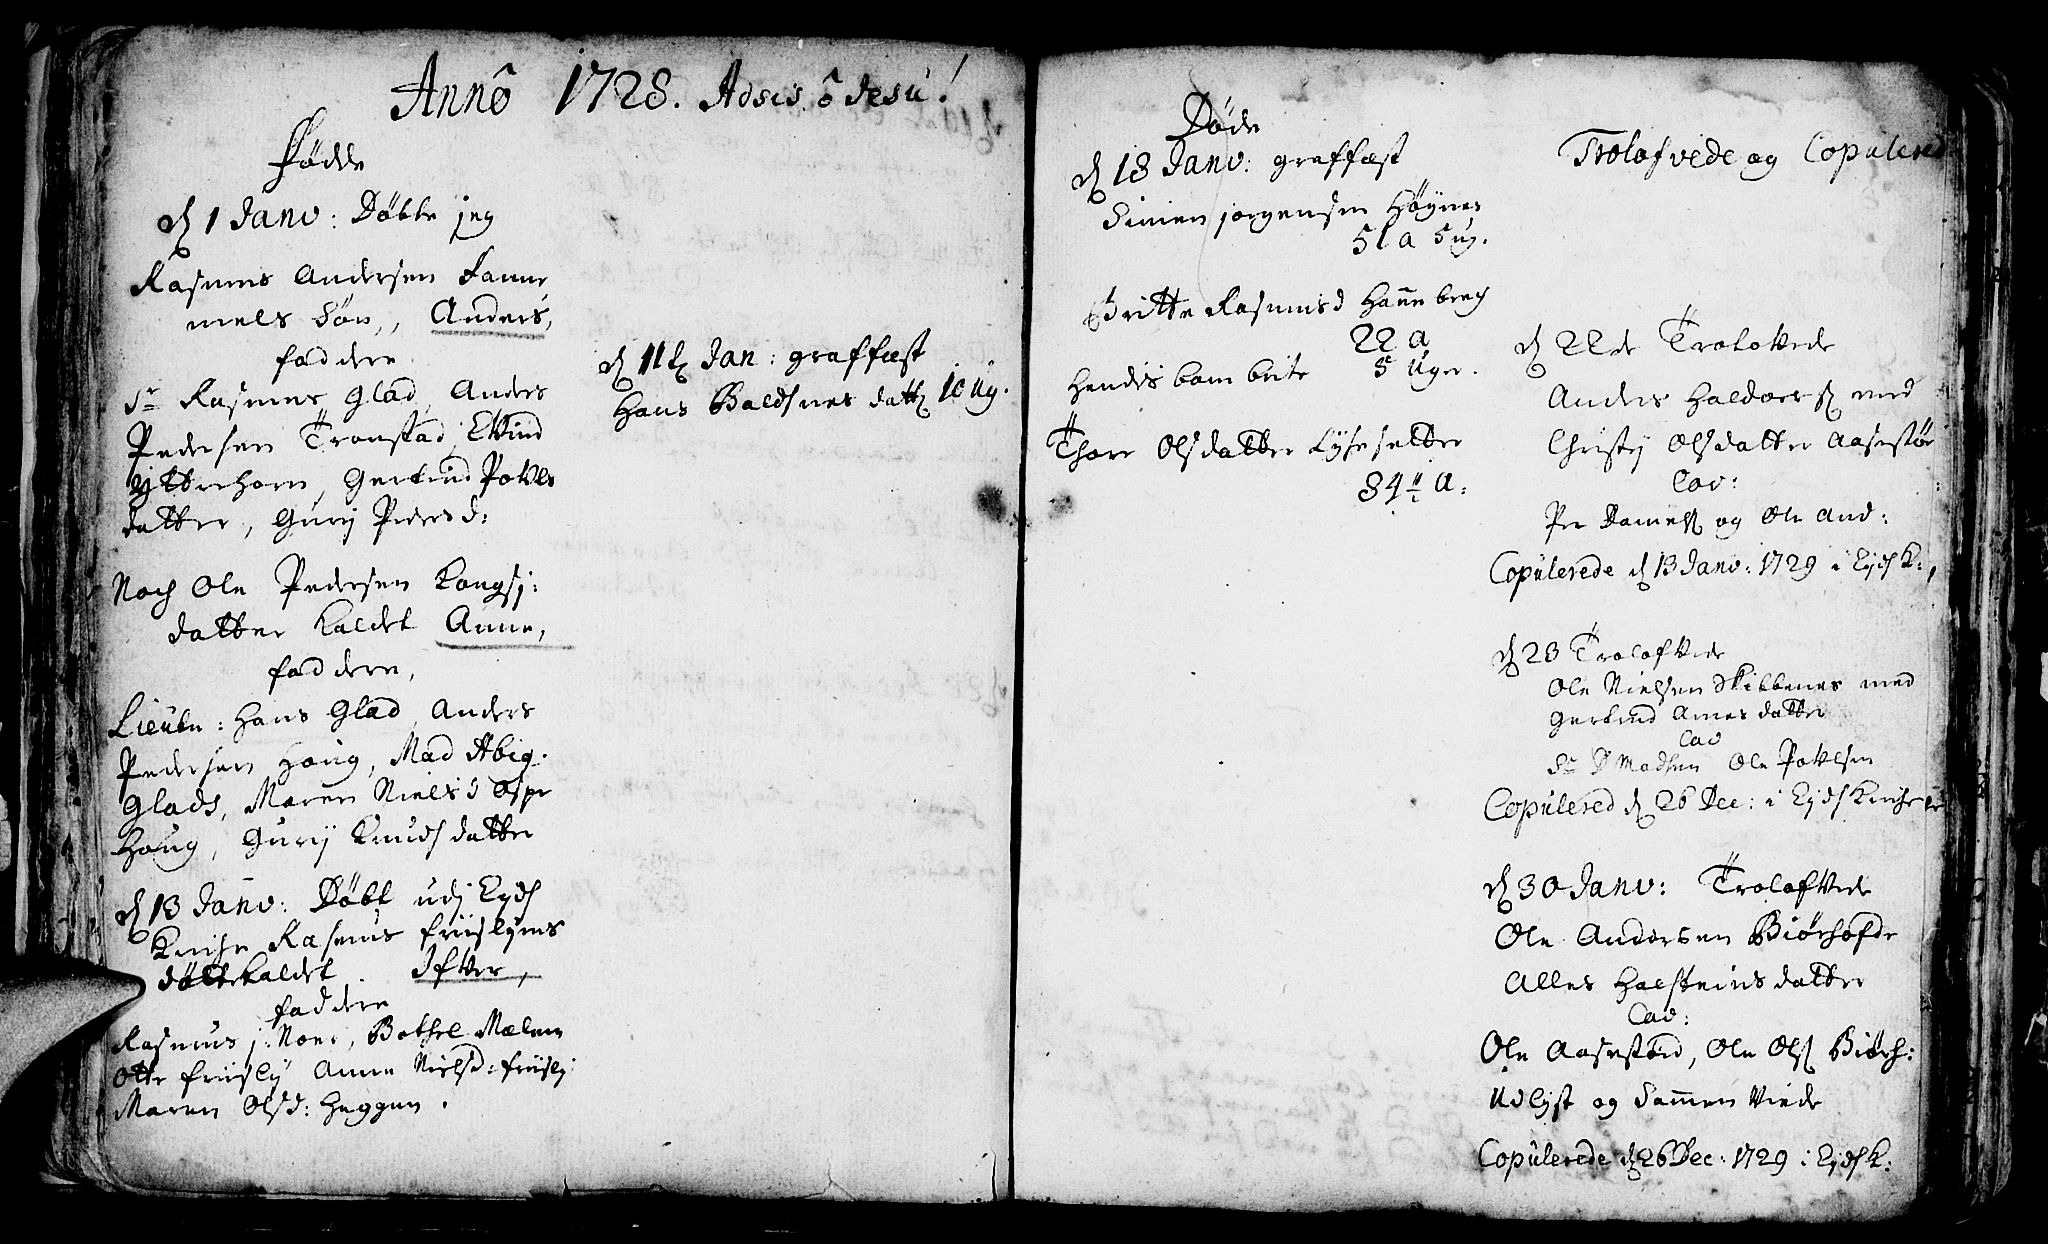 Annô 1728. Adsis ô Jesu!
Fødde
d 1 Janv: Døbte jeg
Rasmus Andersen Sanne
mels Søn,, Anders,
faddere
Sr Rasmus Glad, Anders
Pedersen Tronstad, EVind
Ytterhorn, Gertrud Povels
datter, Gury Peders d:
Noch Ole Pedersen Kongsj:
datter kaldet Anne,
faddere,
Lieutn: Hans Glad, Anders
Pedersen Houg, Mad Abig.
Glads, Maren Niels d Espe
Houg, Gury Knuds datter
d 13 Janv: Døbt udi Eyds
Kirche Rasmus friislyms
datter kaldet
faddere
Rasmus j: Nore, Bothel Mælum
Otte friisly Anne Nielsd: friisly
Maren Olsd: Heggen.
d 11t Jan: graffæst
Hans Baldsnes datt 10 ug.
Døde
d 18 Janv: graffæst
Simen jorgensen Høgnes
51 a 5 ug.
Britte Rasmusd Hanneberg
22 a
Hendis barn brite 5 Uger.
Thore Olsdatter Lysesetter
84 a:
Trolofvede og Copulered
d 22de Trolovede
Anders Haldors med
Christj Olsdatter Aasestør
Cav:
Per Daniels og Ole And:
Copulerede d 13 Janv: 1729 i Eyds K:,
d 23 Trolofvede
Ole Nielsen Skibbenes med
Gertrud Arnes datter
Cav
Sr D Madsen Ole Povelsen
Copulered d 26 Dec: i Eyds Kirche
d 30 Janv: Trolofvede
Ole Andersen Biørhofde
Alles Halsteins datter
Cav:
Ole Aasestød, Ole Ols Biørh:
Udlyst og Sammen Viede
Copulerede d 26 Dec: 1729 i Eyds K: